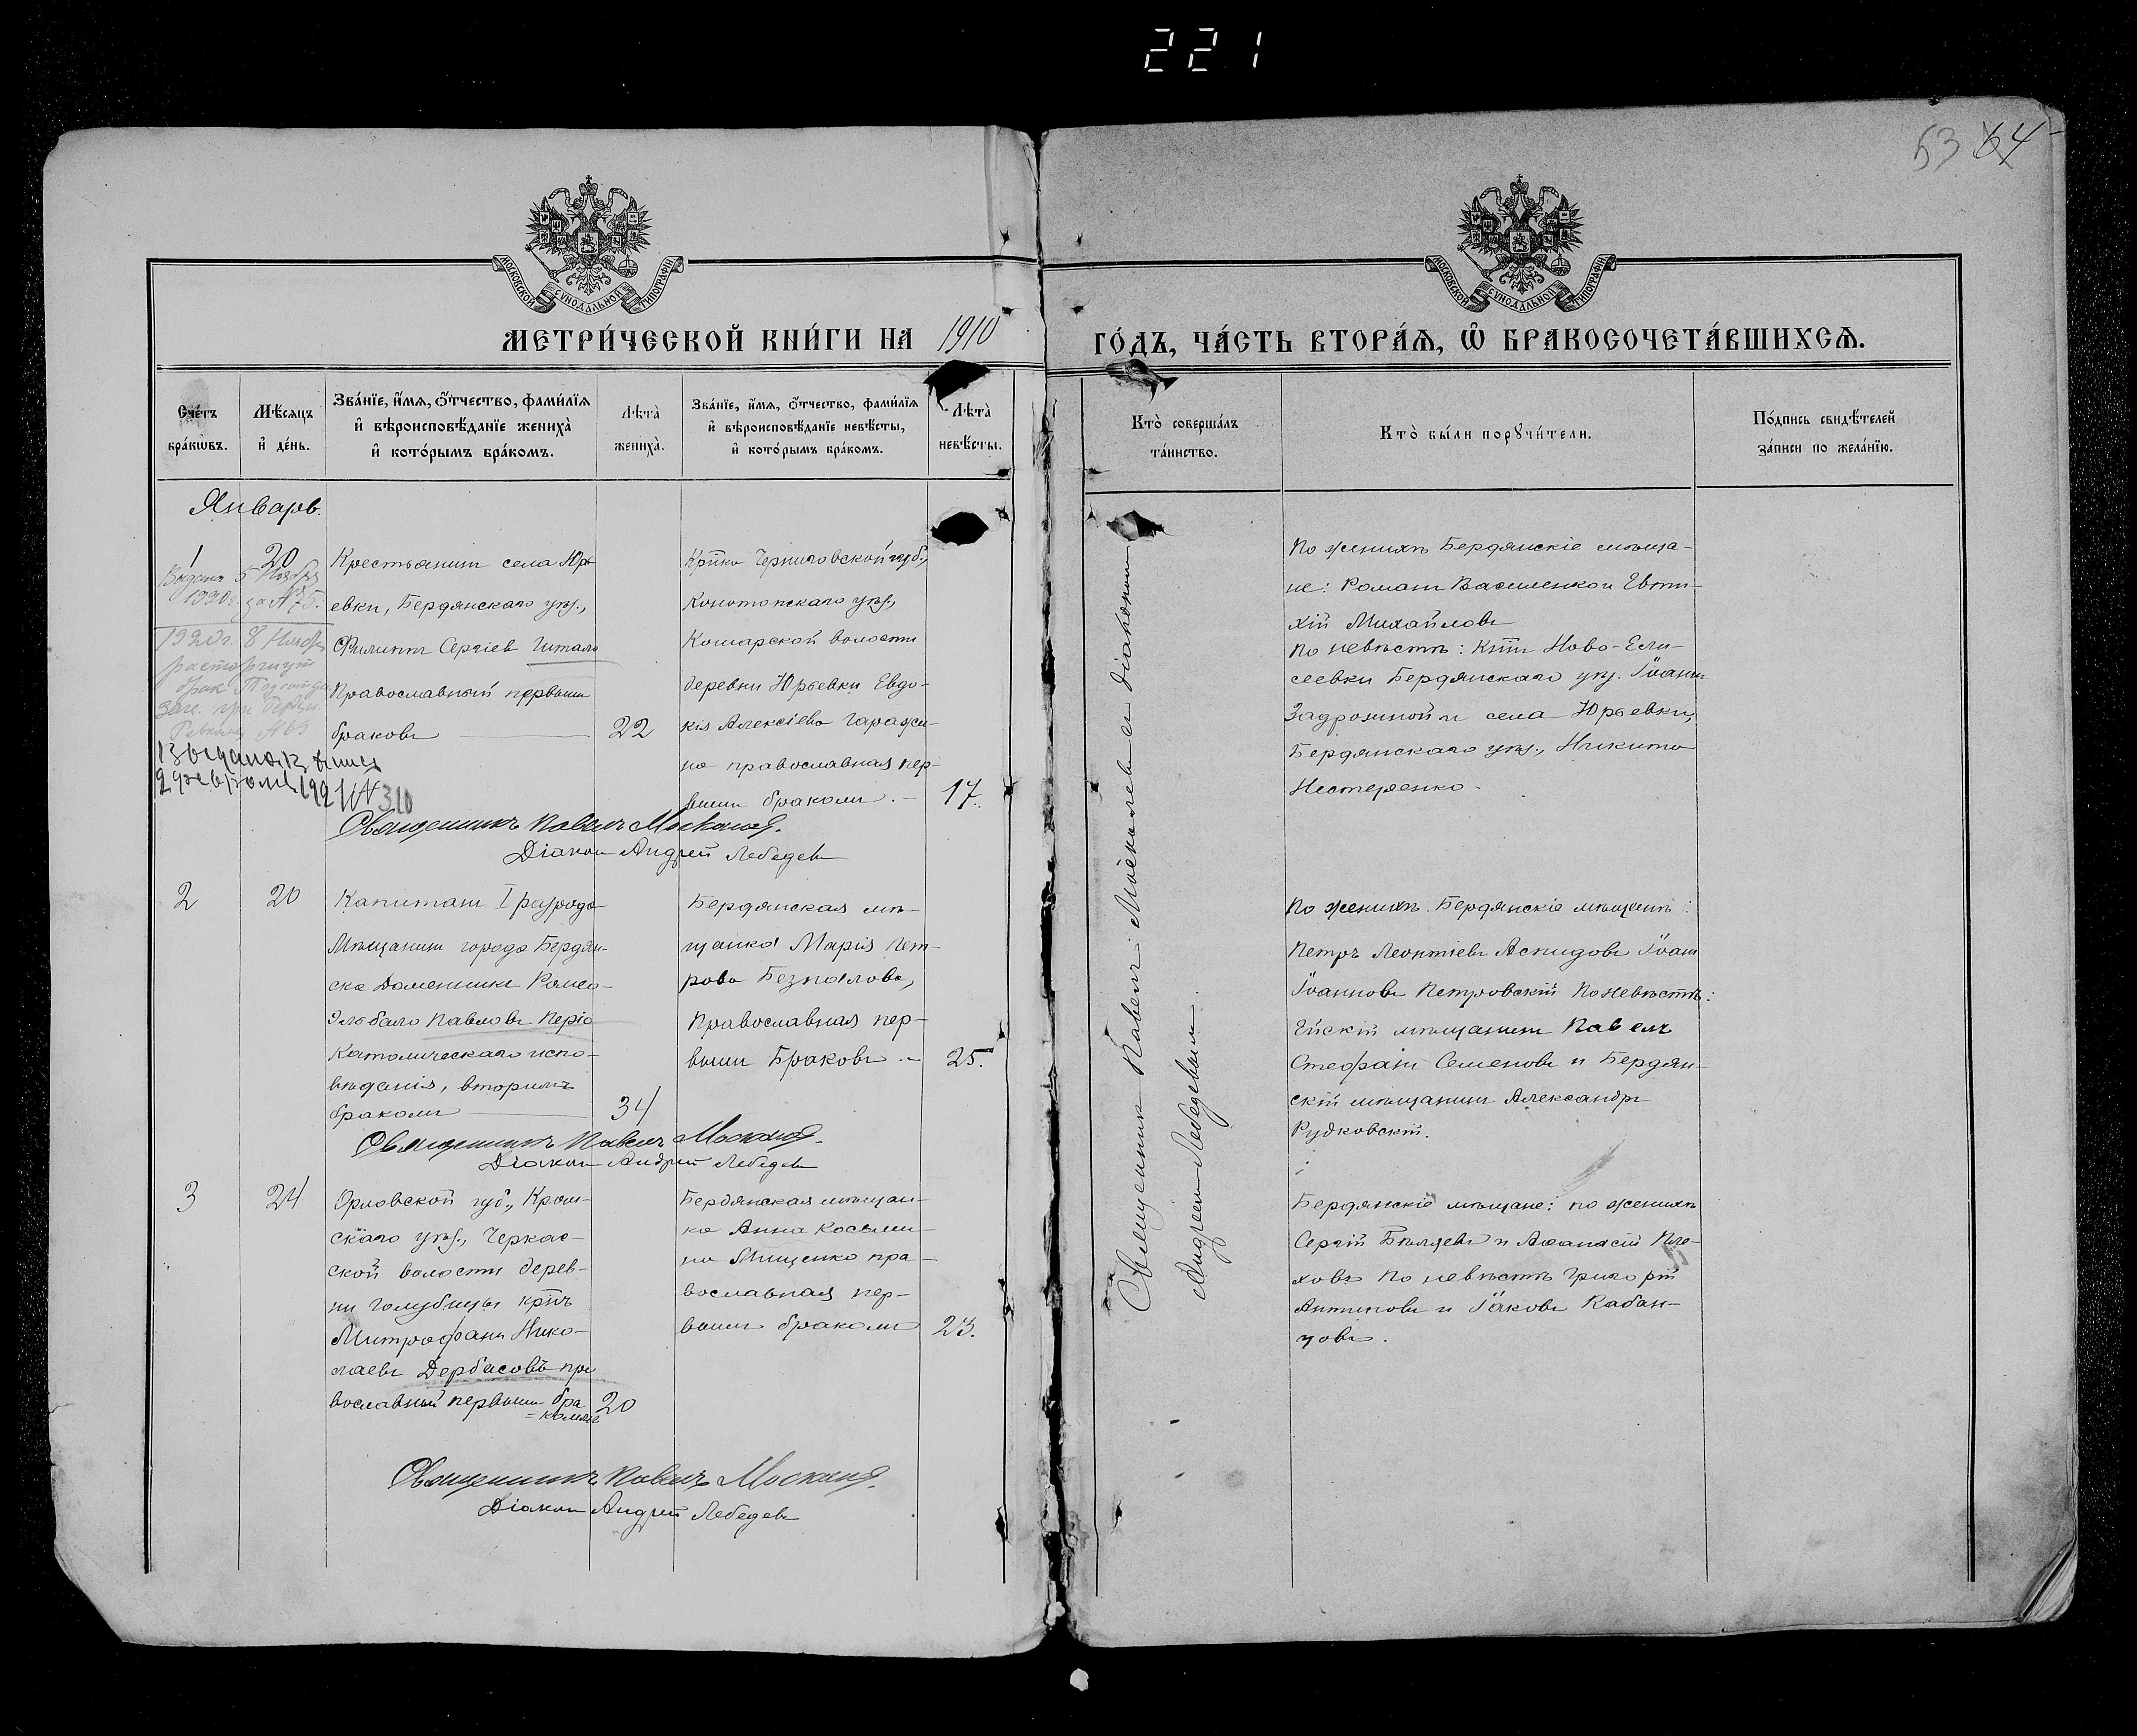 221
53 64
МОСКОВСКОЙ СУНОДАЛЬНОЙ ТИПОГРАФІИ
МОСКОВСКОЙ СУНОДАЛЬНОЙ ТИПОГРАФІИ
МЕТРИ́ЧЕСКОЙ КНИ́ГИ НА 1910 ГО́ДЪ, ЧА́СТЬ ВТОРА́Я, Ѡ БРАКОСОЧЕТА́ВШИХСѦ.
Сче́тъ бра́кѡвъ.
Мѣ́сяцъ и҆ де́нь.
Зва́нїе, и҆́мѧ, ѻ҆́тчество, фами́лїѧ
и҆ вѣроисповѣ́данїе жениха̀
и҆ кото́рымъ бра́комъ.
Лѣта̀ жениха̀.
Зва́нїе, и҆́мѧ, ѻ҆́тчество, фами́лїѧ
и҆ вѣроисповѣ́данїе невѣ́сты,
и҆ кото́рымъ бра́комъ.
Лѣта̀ невѣ́сты.
Кто̀ соверша́лъ та́инство.
Кто̀ бы́ли порꙋчи́тели.
По́дпись свидѣ́телей за́писи по жела́нїю.
Январь.
1
20
5 Ноября
1920 г. за № 75.
1920 г. 8 Нояб.
расторгнут
брак
№ 69
1921 № 310
Крестьянинъ села Юрь-
евки, Бердянскаго уѣз.,
Филиппъ Сергіевъ
Православный первымъ
бракомъ
22
Кр̃нка Черниговской губ.,
Конотопскаго уѣз.,
волости
деревни Юрьевки Евдо-
кія Алексіева Гаражи-
на православная пер-
вымъ бракомъ. –
17.
Священникъ Павелъ
Діаконъ Андрей Лебедевъ
По женихѣ Бердянскіе мѣща-
не: Романъ Василенко и Евти-
хій Михайловъ
По невѣстѣ: Ново-Ели-
сеевки Бердянскаго уѣз. Іоаннъ
и села Юрьевки,
Бердянскаго уѣз., Никита
Нестеренко.
Священникъ Павелъ и діаконъ
Андреемъ Лебедевымъ.
2
20
Капитанъ I разряда
Мѣщанинъ города Бердян-
ска Доменикъ Ромео-
Павловъ
Католическаго испо-
вѣданія, вторымъ
бракомъ
34
Бердянская мѣ-
щанка Марія Пет-
рова Безпалова,
Православная пер-
вымъ Бракомъ. –
25.
Священникъ Павелъ
Діаконъ Андрей Лебедевъ
По женихѣ Бердянскіе мѣщане:
Петръ Леонтіевъ Аспидовъ Іоаннъ
Іоанновъ Петровскій По невѣстѣ:
Ейскій мѣщанинъ Павелъ
Стефанъ Семеновъ и Бердян-
скій мѣщанинъ Александръ
Рудковскій.
3
24
Орловской губ., Кром-
скаго уѣз., Черкас-
ской волости дерев-
ни Голубицы кр̃нъ
Митрофанъ Нико-
лаевъ Дербасовъ пра
вославный первымъ бра
=комъ
20
Бердянская мѣщан-
ка Анна Косьми-
на Мищенко пра-
вославная пер-
вымъ бракомъ
23.
Бердянскіе мѣщане: по женихѣ
Сергій Бѣляевъ и Аѳанасій
ховъ По невѣстѣ Григорій
Антиповъ и Іаковъ Кабан-
цовъ.
Священникъ Павелъ
Діаконъ Андрей Лебедевъ